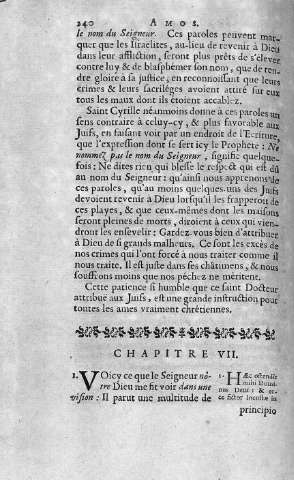 240 AMOS.
le nom du Seigneur. Ces paroles peuvent mar-
quer que les Israelites, au-lieu de revenir à Dieu
dans leur affliction, seront plus prêts de s'élever
contre luy & de blasphémer son nom, que de ren-
dre gloire à sa justice, en reconnoissant que leurs
crimes & leurs sacrilèges avoient attiré sur eux
tous les maux dont ils étoient accablez.
Saint Cyrille néanmoins donne à ces paroles un
sens contraire à celuy-cy, & plus favorable aux
Juifs, en faisant voir par un endroit de l'Ecriture,
que l'expression dont se sert icy le Prophete : Ne
nommez pas le nom du Seigneur, signifie quelque-
fois : Ne dites rien qui blesse le respect qui est dû
au nom du Seigneur : qu'ainsi nous apprenons de
ces paroles, qu'au moins quelques-uns des Juifs
devoient revenir à Dieu lorsqu'il les frapperoit de
ces playes, & que ceux-mêmes dont les maisons
seront pleines de morts, diroient à ceux qui vien-
dront les ensevelir : Gardez-vous bien d'attribuer
à Dieu de si grands malheurs. Ce sont les excés de
nos crimes qui l'ont forcé à nous traiter comme il
nous traite. Il est juste dans ses châtimens, & nous
souffrons moins que nos péchez ne méritent.
Cette patience si humble que ce saint Docteur
attribuë aux Juifs, est une grande instruction pour
toutes les ames vraiment chrétiennes.
CHAPITRE VII.
1. VOicy ce que le Seigneur nô-
tre Dieu me fit voir dans une
vision : Il parut une multitude de
1. HÆc ostendit
mihi Domi-
nus Deus : & ec-
ce fictor locustæ in
principio